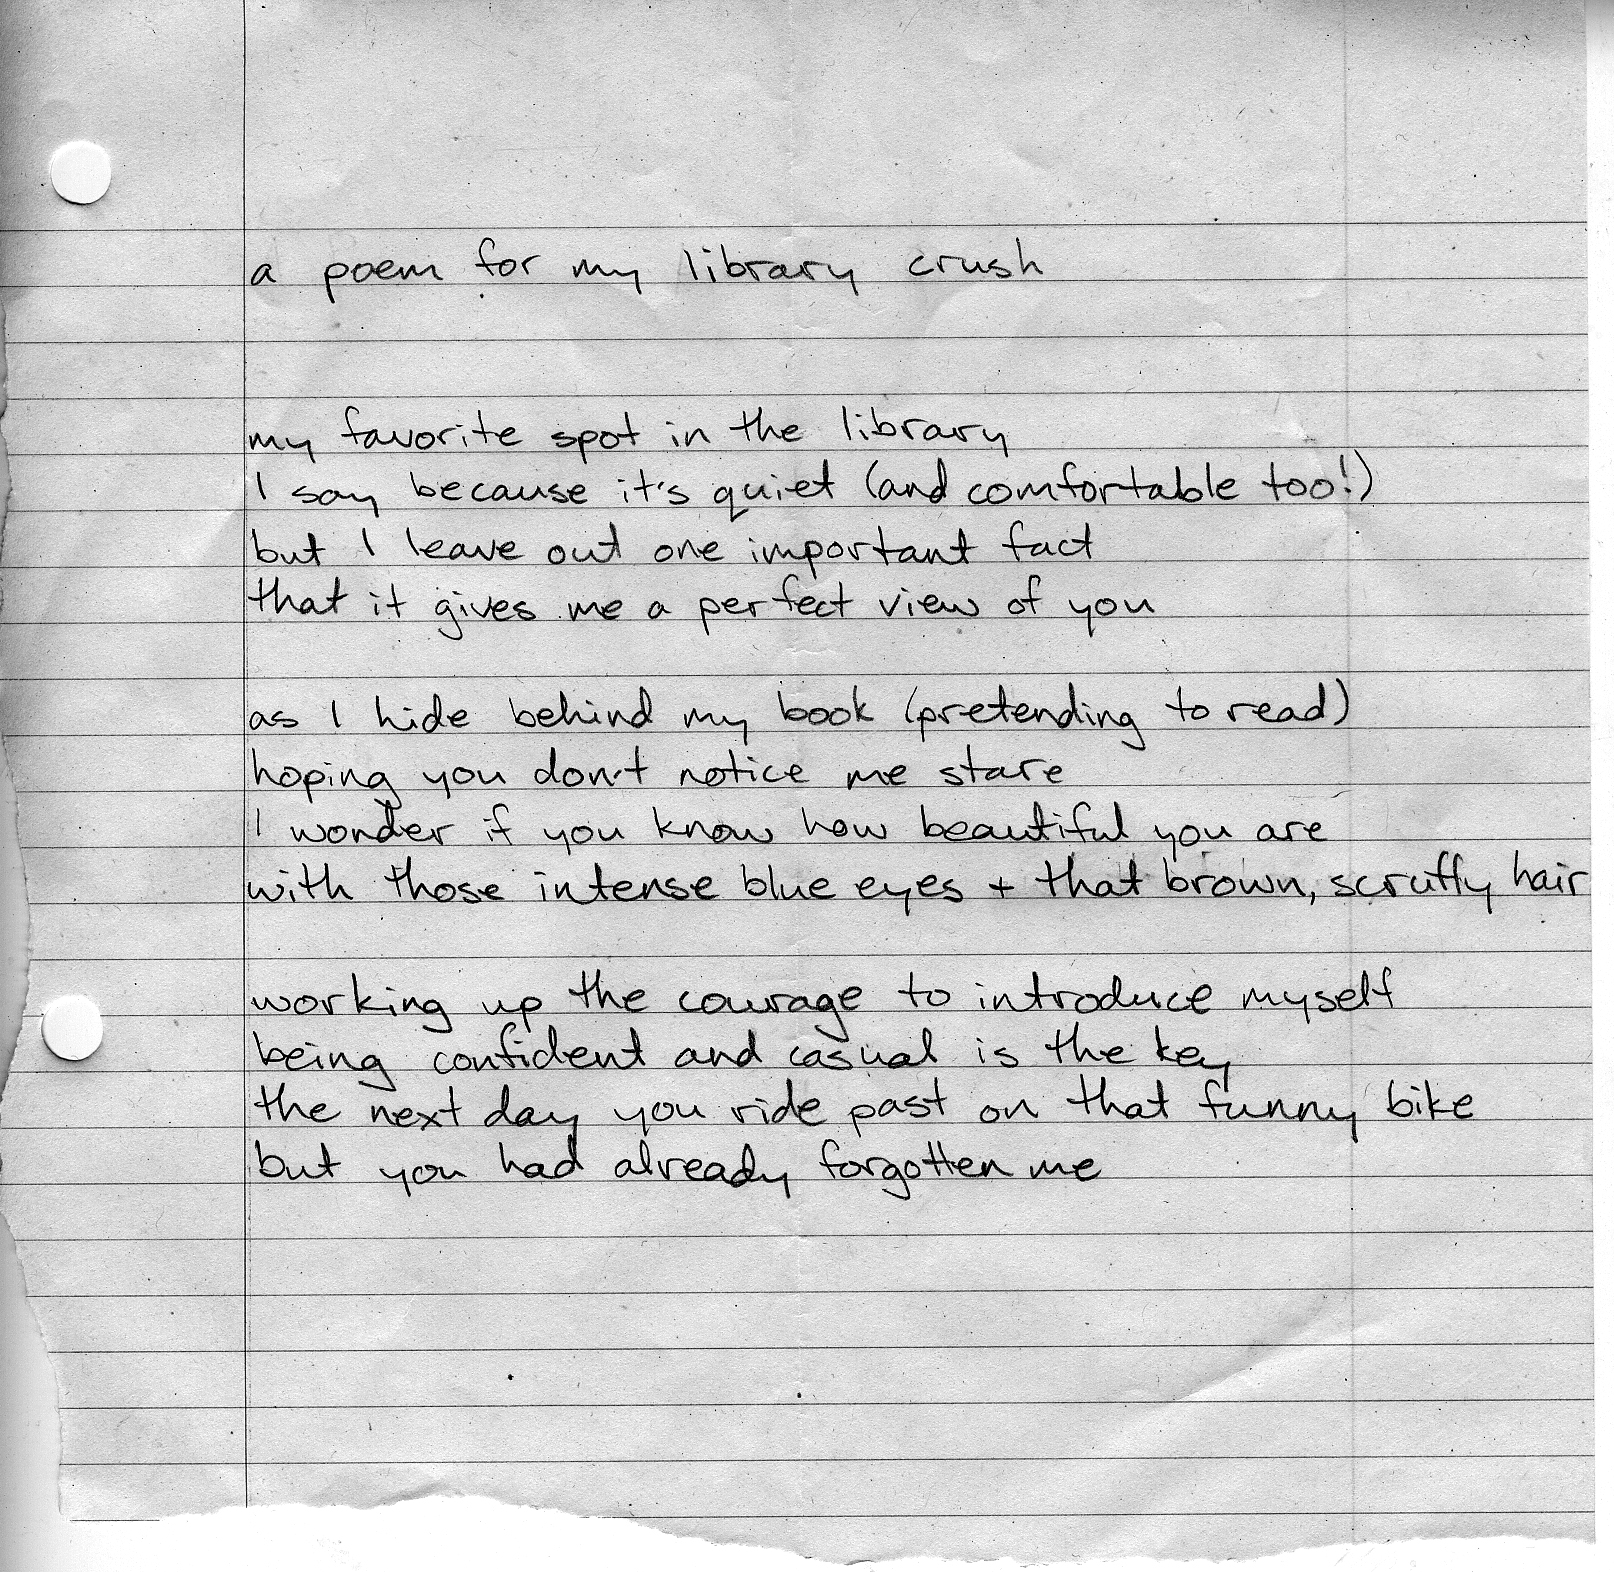 a poem for my library crush
my favorite spot in the library
I say because it's quiet (and comfortable too!)
but I leave out one important fact
that it gives me a perfect view of you
as I hide behind my book (pretending to read)
hoping you don't notice me stare
I wonder if you know how beautiful you are
with those intense blue eyes + that brown, scruffy hair
working up the courage to introduce myself
being confident and casual is the key
the next day you ride past on that funny bike
but you had already forgotten me